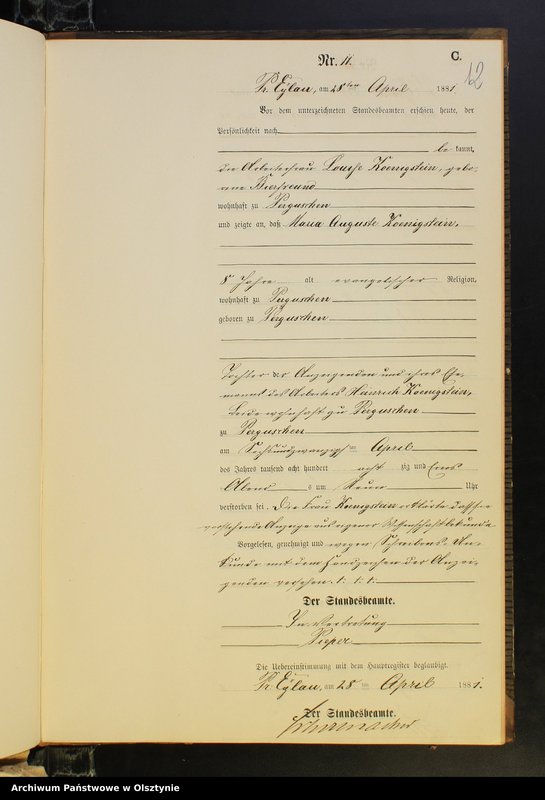 C.
Nr. 11.
62
Pr. Eylau, am 28ten April 1881
Vor dem unterzeichneten Standesbeamten erschien heute, der
Persönlichkeit nach
be kannt,
die Arbeiterfrau Louise Koenigstein, gebo-
rene Bierfreund
wohnhaft zu Perguschen
und zeigte an, daß Maria Auguste Koenigstein,
8 Jahre alt evangelischer Religion,
wohnhaft zu Perguschen
geboren zu Perguschen
Tochter der Anzeigenden und ihres Ehe-
manns des Arbeiters Heinrich Koenigstein,
beide wohnhaft zu Perguschen
zu Perguschen
am Sechsundzwanzigsten April
des Jahres tausend acht hundert acht zig und Eins
Abend s um Neun Uhr
verstorben sei. Die Frau Koenigstein erklärte daß sie
vorstehende Anzeige aus eigener Wissenschaft bekunde
Vorgelesen, genehmigt und wegen Schreibens Un-
kunde mit dem Handzeichen der Anzei-
genden versehen. †. †. †.
Der Standesbeamte.
In Vertretung
Pieper
Die Uebereinstimmung mit dem Hauptregister beglaubigt.
Pr. Eylau, am 28ten April 1881.
Der Standesbeamte.
Archiwum Państwowe w Olsztynie